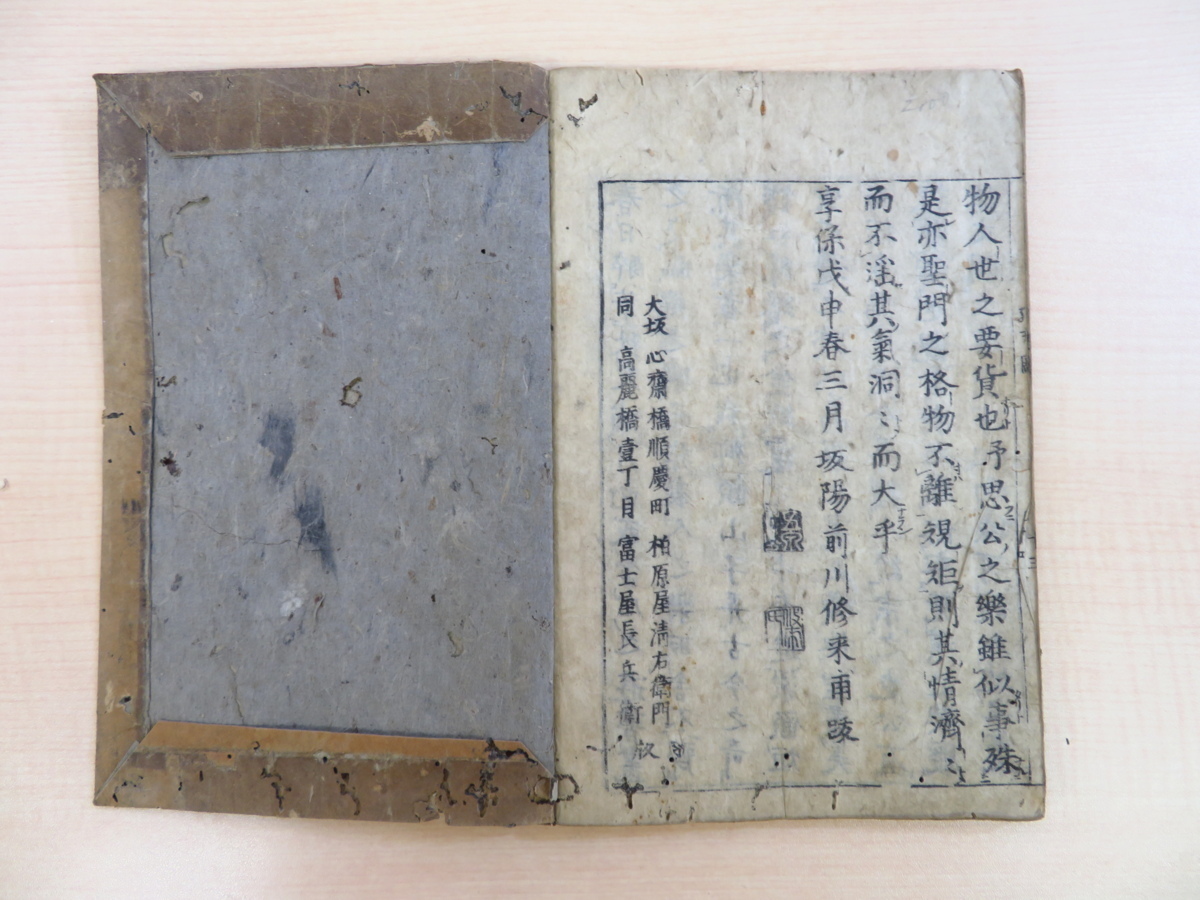 物人世之要貨也予思公之樂雖似事殊
是亦聖門之格物不離規矩則其情濟〻
而不滛其氣洞〻而大乎
享保戊申春三月坂陽前川修来甫䟦
大坂 心齋橋順慶町 柏原屋清右衛門
同 高麗橋壹丁目 富士屋長兵衛